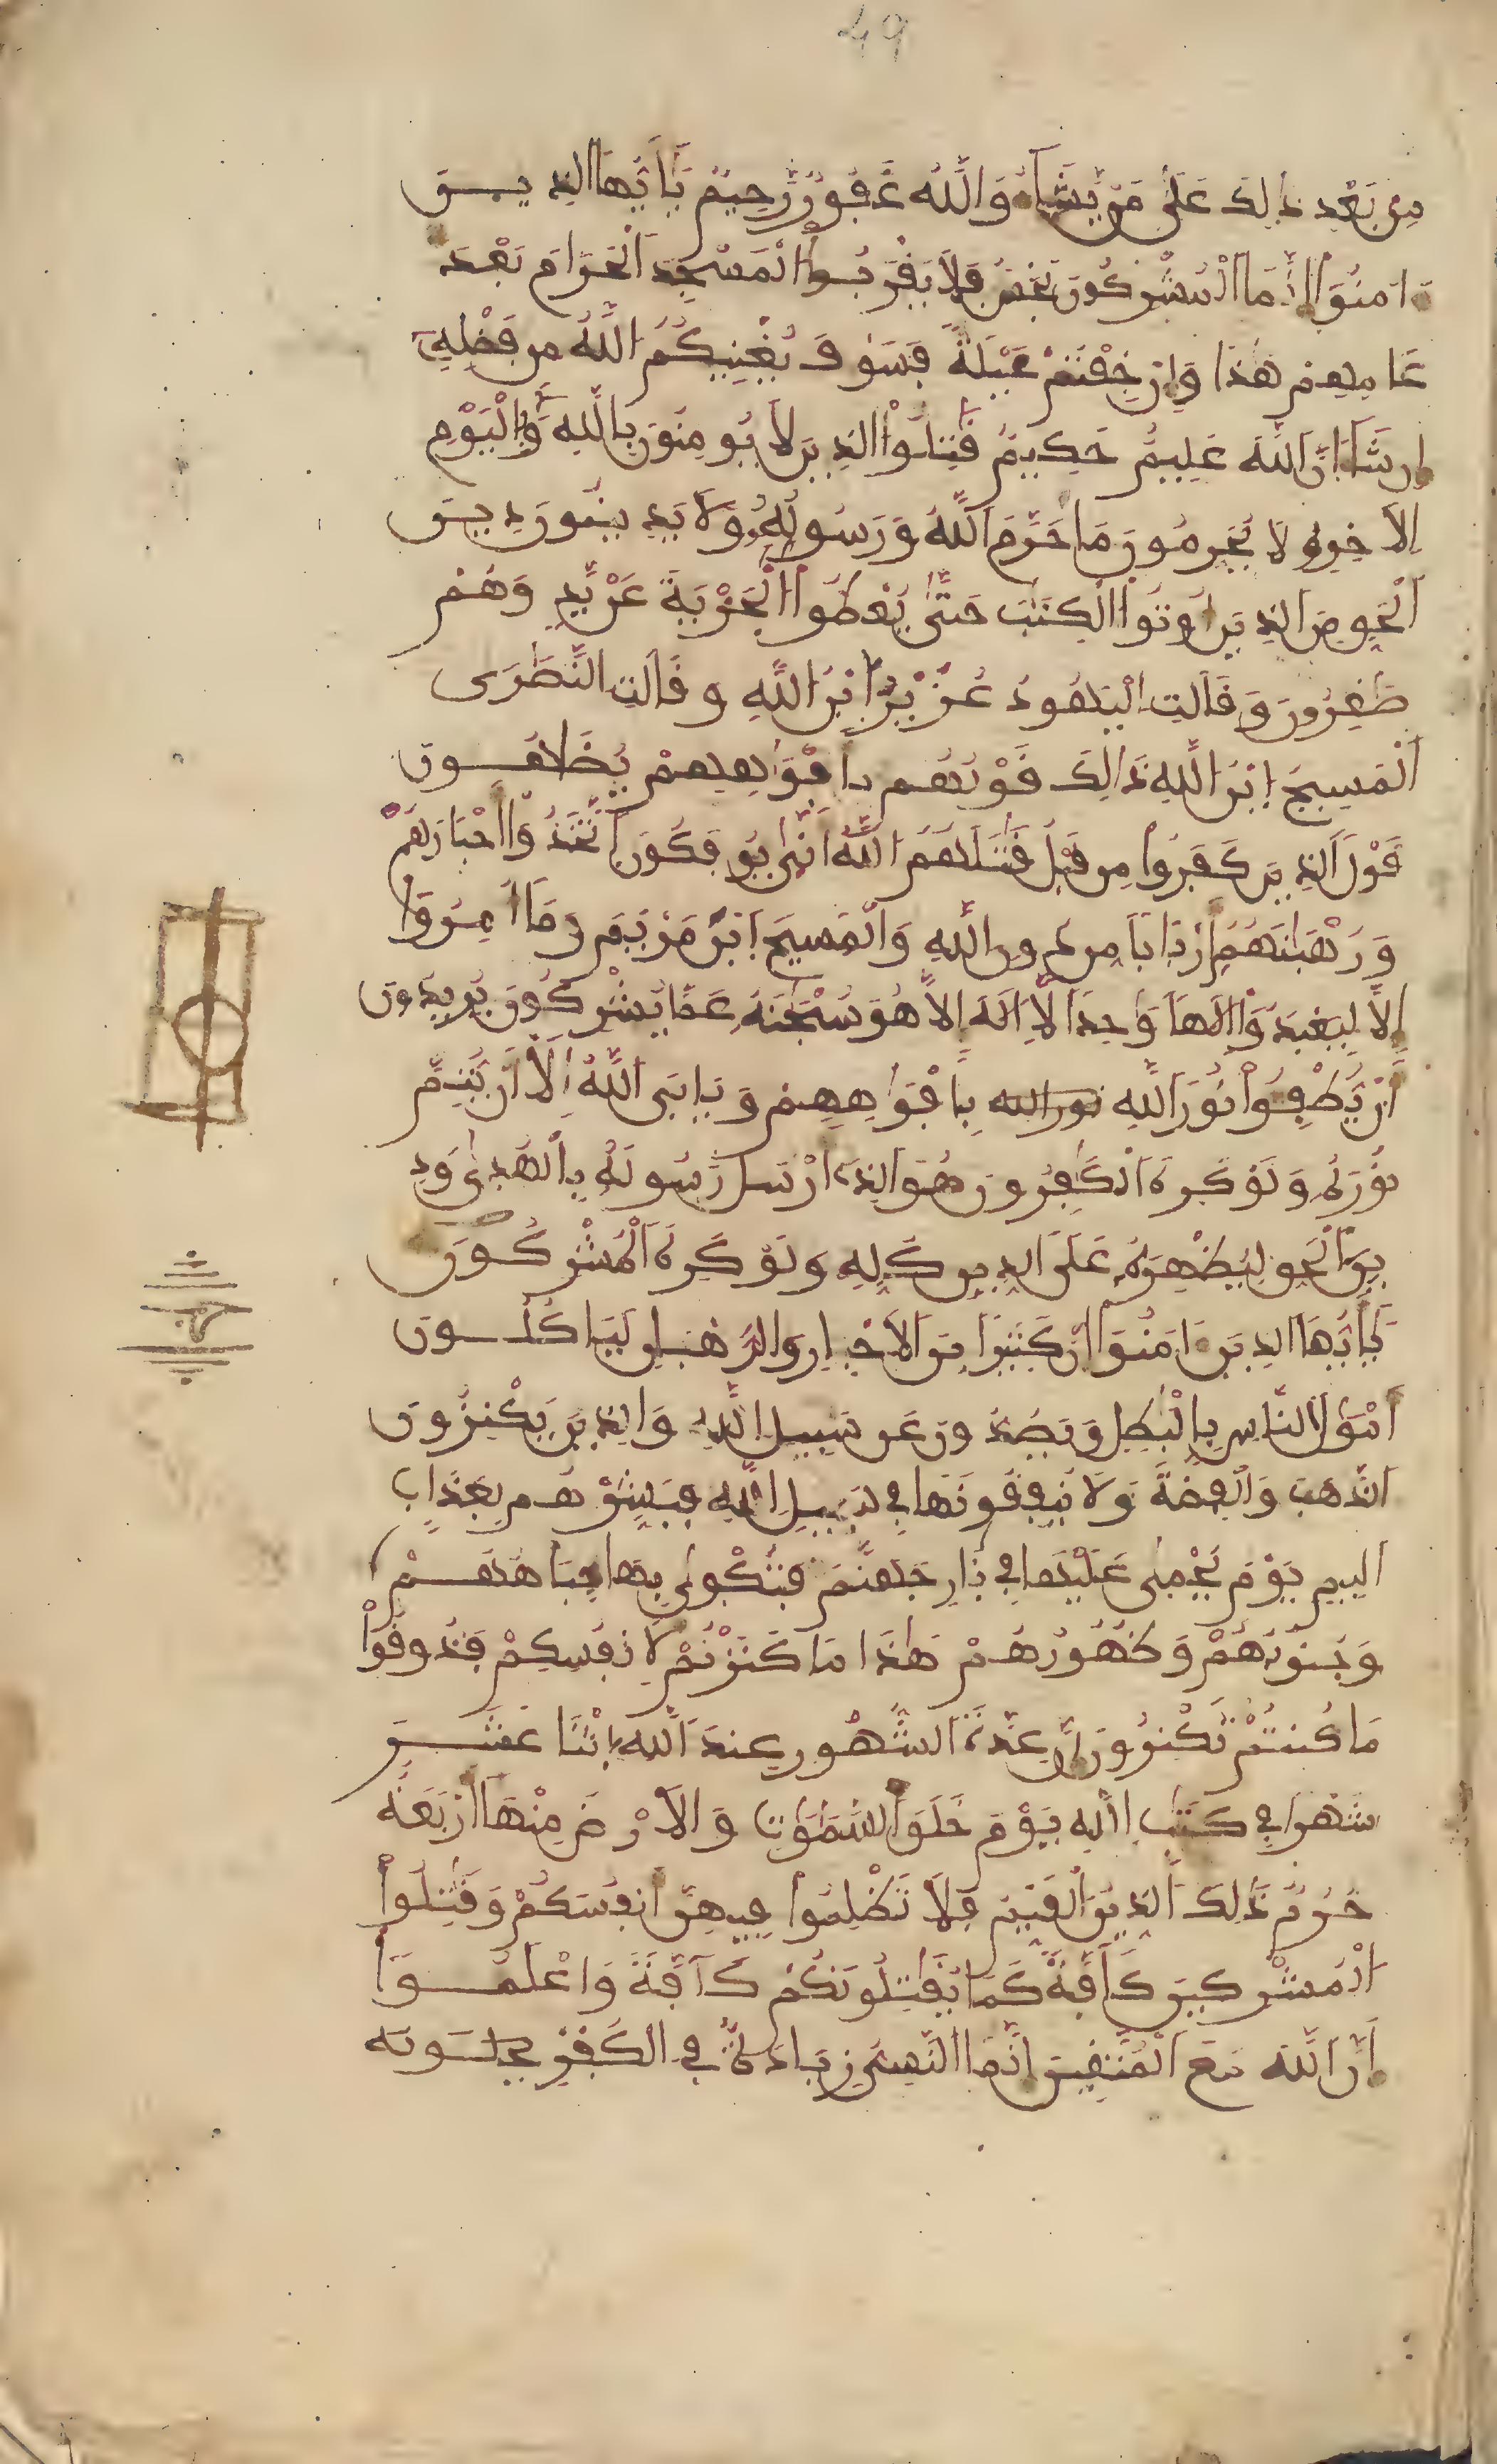 49
مِن بَعْدِ ذَٰلِكَ عَلَىٰ مَنْ يَّشَآءُ وَاللَّهُ غَفُورٌ رَّحِيمٌ يَٰأَيُّهَا الذِيـــنَ
ءَامَنُوٓا إِنَّمَا الْمُشْرِكُونَ نَجَسٌ فَلَا يَقْرَبُوا الْمَسْجِدَ الْحَرَامَ بَعْدَ
عَامِهِمْ هَٰذَا وَإِنْ خِفْتُمْ عَيْلَةً فَسَوْفَ يُغْنِيكُمُ اللَّهُ مِن فَضْلِهِ
إِن شَآءَ اِنَّ اللَّهَ عَلِيمٌ حَكِيمٌ قَٰتِلُوا الذِينَ لَا يُومِنُونَ بِاللَّهِ وَلَا بِالْيَوْمِ
الَاخِرِ وَلَا يُحَرِّمُونَ مَا حَرَّمَ اللَّهُ وَرَسُولُهُ وَلَا يَدِينُونَ دِيـنَ
الْحَقِّ مِنَ الذِينَ أُوتُوا الْكِتَٰبَ حَتَّىٰ يُعْطُوا الْجِزْيَةَ عَنْ يَّدٍ وَهُمْ
صَٰغِرُونَ وَقَالَتِ الْيَهُودُ عُزَيْرٌ ابْنُ اللَّهِ وَقَالَتِ النَّصَٰرَى
الْمَسِيحُ ابْنُ اللَّهِ ذَٰلِكَ قَوْلُهُم بِأَفْوَٰهِهِمْ يُضَٰهُــونَ
قَوْلَ الذِينَ كَفَرُوا مِن قَبْلُ قَٰتَلَهُمُ اللَّهُ أَنَّىٰ يُوفَكُونَ اتَّخَذُوٓا أَحْبَارَهُمْ
وَرُهْبَٰنَهُمُ أَرْبَابًا مِّن دُونِ اللَّهِ وَالْمَسِيحَ ابْنَ مَرْيَمَ وَمَآ أُمِرُوٓا
إِلَّا لِيَعْبُدُوٓا إِلَٰهًا وَٰحِدًا لَّا إِلَٰهَ إِلَّا هُوَ سُبْحَٰنَهُ عَمَّا يُشْرِكُونَ يُرِيدُونَ
أَنْ يُّطْفِـُٔوا نُورَ اللَّهِ نور الله بِأَفْوَٰهِهِمْ وَيَابَى اللَّهُ إِلَّآ أَنْ يُّتِمَّ
نُورَهُ وَلَوْ كَرِهَ الْكَٰفِرُونَ هُوَ الذِى أَرْسَلَ رَسُولَهُ بِالْهُدَىٰ وَدِ
ينِ الْحَقِّ لِيُظْهِرَهُ عَلَى الدِّينِ كُلِّهِ وَلَوْ كَرِهَ الْمُشْرِكُونَ
يَٰأَيُّهَا الذِينَ ءَامَنُوٓا إِنَّ كَثِيرًا مِّنَ الَاحْبَارِ وَالرُّهْبَانِ لَيَاكُلُــونَ
أَمْوَٰلَ النَّاسِ بِالْبَٰطِلِ وَيَصُدُّونَ عَن سَبِيلِ اللَّهِ وَالذِينَ يَكْنِزُونَ
الذَّهَبَ وَالْفِضَّةَ وَلَا يُنفِقُونَهَا فِي سَبِيلِ اللَّهِ فَبَشِّرْهُم بِعَذَابٍ
اَلِيمٍ يَوْمَ يُحْمَىٰ عَلَيْهَا فِي نَارِ جَهَنَّمَ فَتُكْوَىٰ بِهَا جِبَاهُهُــمْ
وَجُنُوبُهُمْ وَظُهُورُهُمْ هَٰذَا مَا كَنَزْتُمْ لِأَنفُسِكُمْ فَذُوقُوا
مَا كُنتُمْ تَكْنِزُونَ إِنَّ عِدَّةَ الشُّهُورِ عِندَ اللَّهِ اثْنَا عَشَــرَ
شَهْرًا فِي كِتَٰبِ اللَّهِ يَوْمَ خَلَقَ السَّمَٰوَٰتِ وَالَارْضَ مِنْهَآ أَرْبَعَةٌ
حُرُمٌ ذَٰلِكَ الدِّينُ الْقَيِّمُ فَلَا تَظْلِمُوا فِيهِنَّ أَنفُسَكُمْ وَقَٰتِلُوا
الْمُشْرِكِينَ كَآفَّةً كَمَا يُقَٰتِلُونَكُمْ كَآفَّةً وَاعْلَمُـــوٓا
أَنَّ اللَّهَ مَعَ الْمُتَّقِينَ إِنَّمَا النَّسِيٓءُ زِيَادَةٌ فِي الْكُفْرِ يحلـونه